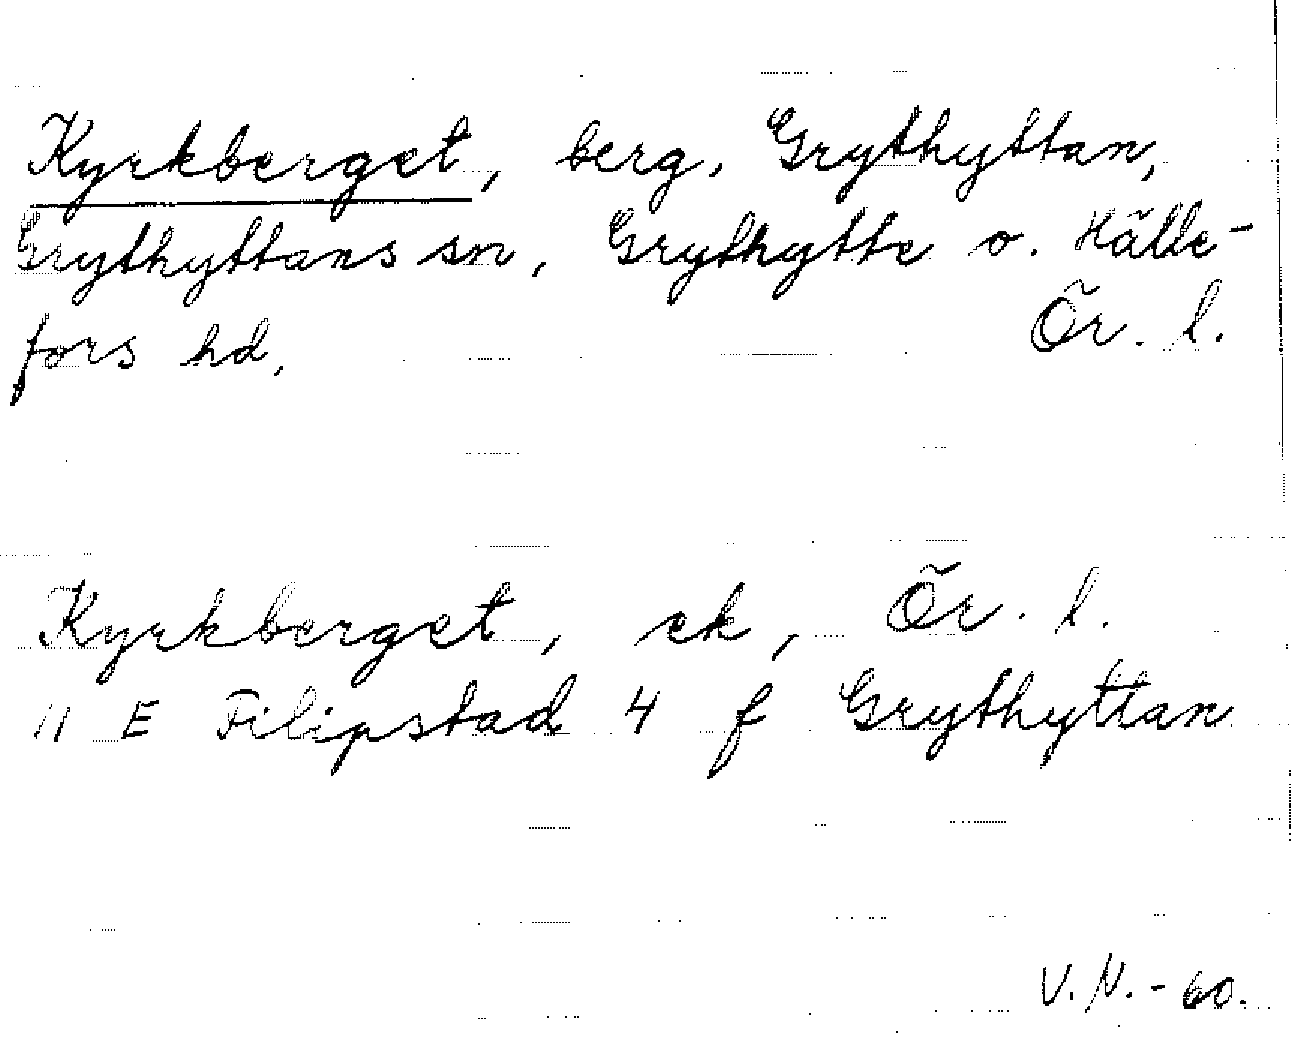 Kyrkberget, berg, Grythyttan,
Grythyttans sn, Grythytte o. Hälle-
fors hd, Ör. l.
Kyrkberget, ek, Ör. l.
11 E Filipstad 4 f Grythyttan
V.N.-60.